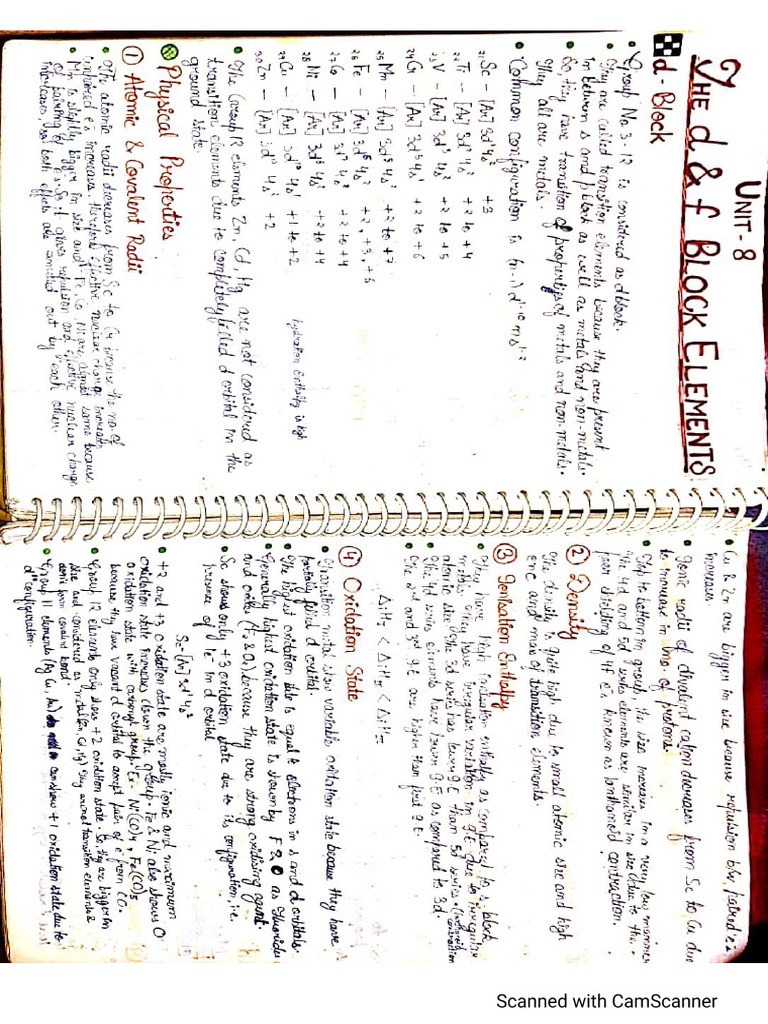 UNIT-8
THE d & f BLOCK ELEMENTS
d-Block
• Group No 3-12 is considered as d block.
• They are called transition elements because they are present
in between s and p block as well as metals and non-metals.
• So, they have transition of properties of metals and non-metals.
They all are metals.
• Common configuration is (n-1)d¹⁻¹⁰ ns¹⁻²
₂₁Sc - [Ar] 3d¹4s² +3
₂₂Ti - [Ar] 3d²4s² +2 to +4
₂₃V - [Ar] 3d³4s² +2 to +5
₂₄Cr - [Ar] 3d⁵4s¹ +2 to +6
₂₅Mn - [Ar] 3d⁵4s² +2 to +7
₂₆Fe - [Ar] 3d⁶4s² +2, +3, +6
[Ar] 3d⁷4s² +2 to +4
Ni - [Ar] 3d⁸4s² +2 to +4
₂₉Cu - [Ar] 3d¹⁰4s¹ +1 to +2 hydration enthalpy is high
₃₀Zn - [Ar] 3d¹⁰4s² +2
• The Group 12 elements Zn, Cd, Hg are not considered as
transition elements due to completely filled d orbital in the
ground state.
Physical Properties
① Atomic & Covalent Radii
• The atomic radii decreases from Sc to Cr because the no of
unpaired e's increases, therefore effective nuclear charge increases
• Mn is slightly bigger in size and Fe, Co, Ni are almost same because
of pairing of e's. So it gives repulsion and effective nuclear charge
increases, so both effects are cancelled out by each other.
• Cu & Zn are bigger in size because repulsion b/w paired e's
increases
• Ionic radii of divalent cation decreases from Sc to Cu due
to increase in no. of protons.
• Top to bottom in group, the size increases in a very less manner
The 4d and 5d series elements are similar in size due to the
poor shielding of 4f e's known as lanthanoid contraction.
② Density
The density is quite high due to small atomic size and high
and mass of transition elements.
③ Ionisation Enthalpy
• They have high ionisation enthalpy as compared to s block
metals. They have irregular variation in I.E due to irregular
atomic size.
• The 4d series elements have lower I.E as compared to 3d
• The 2nd and 3rd I.E are higher than first I.E.
ΔiH₁ < ΔiH₂ < ΔiH₃
④ Oxidation State
• Transition metal show variable oxidation state because they have
partially filled d orbital.
• The highest oxidation state is equal to electrons in s and d orbitals.
• Generally highest oxidation state is shown by F & O as fluorides
and oxides (F₂ & O₂) because they are strong oxidising agent.
• Sc shows only +3 oxidation state due to its configuration, i.e.
presence of 1e⁻ in d orbital
Sc = [Ar] 3d¹4s²
• +2 and +3 oxidation state are mostly ionic and maximum
oxidation state increases down the group. Fe & Ni also shows 0
oxidation state with carbonyl group. Ex - Ni(CO)₄, Fe(CO)₅
because they have vacant d orbital to accept pair of e⁻ from CO.
• Group 12 elements only show +2 oxidation state. So, they are bigger in
size and considered as metal (Zn, Cd, Hg) They are not transition elements &
form covalent bond.
• Group 11 elements (Ag, Cu, Au) can show +1 oxidation state due to
d¹⁰ configuration.
Scanned with CamScanner